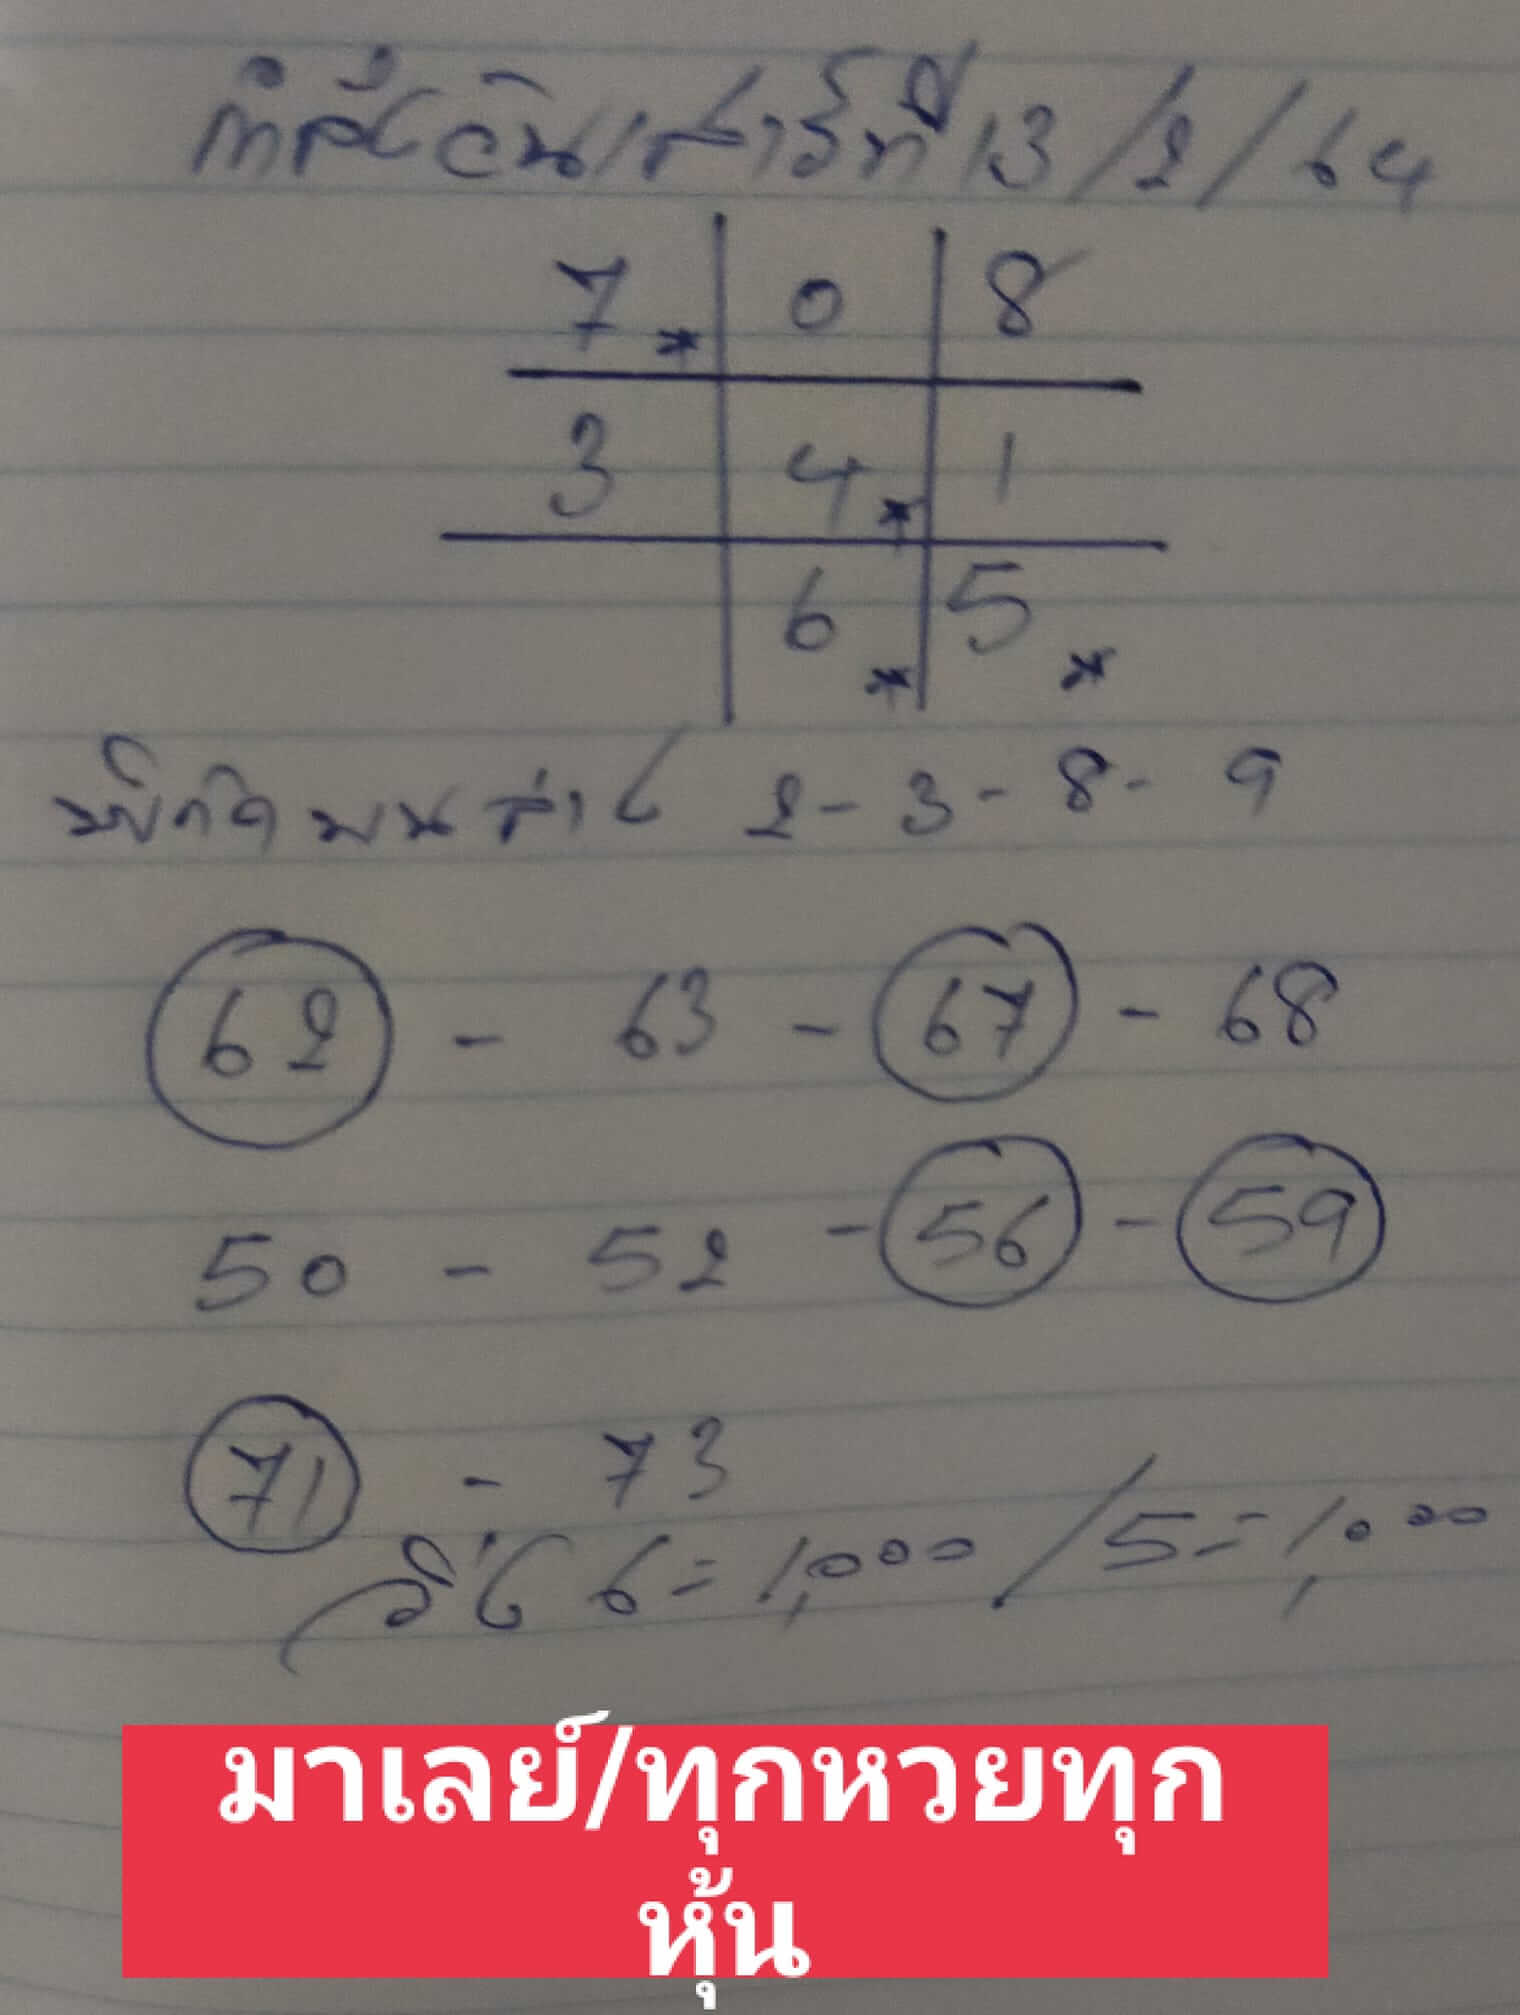 วันเสาร์ที่ 13/2/64
7* 0 8
3 4* 1
6* 5*
พิกัด บน ล่าง 2-3-8-9
62 - 63 - 67 - 68
50 - 52 - 56 - 59
71 - 73
วิ่ง 6=1,000/5=1,000
มาเลย์/ทุกหวยทุก
หุ้น